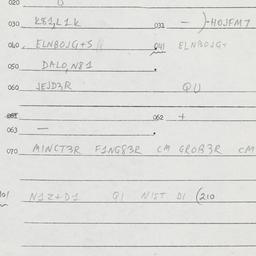 020
030 K81,L1K 031 — )-HOJFM7
040 ELNBOJG+S 041 ELNBOJG+
050 DALO,N81
060 JEJD3R QU
062 +
063 —
070 MINCT3R F1NG83R CM GROB3R CM
101 N1Z+D1 Q1 NIST D1 (210